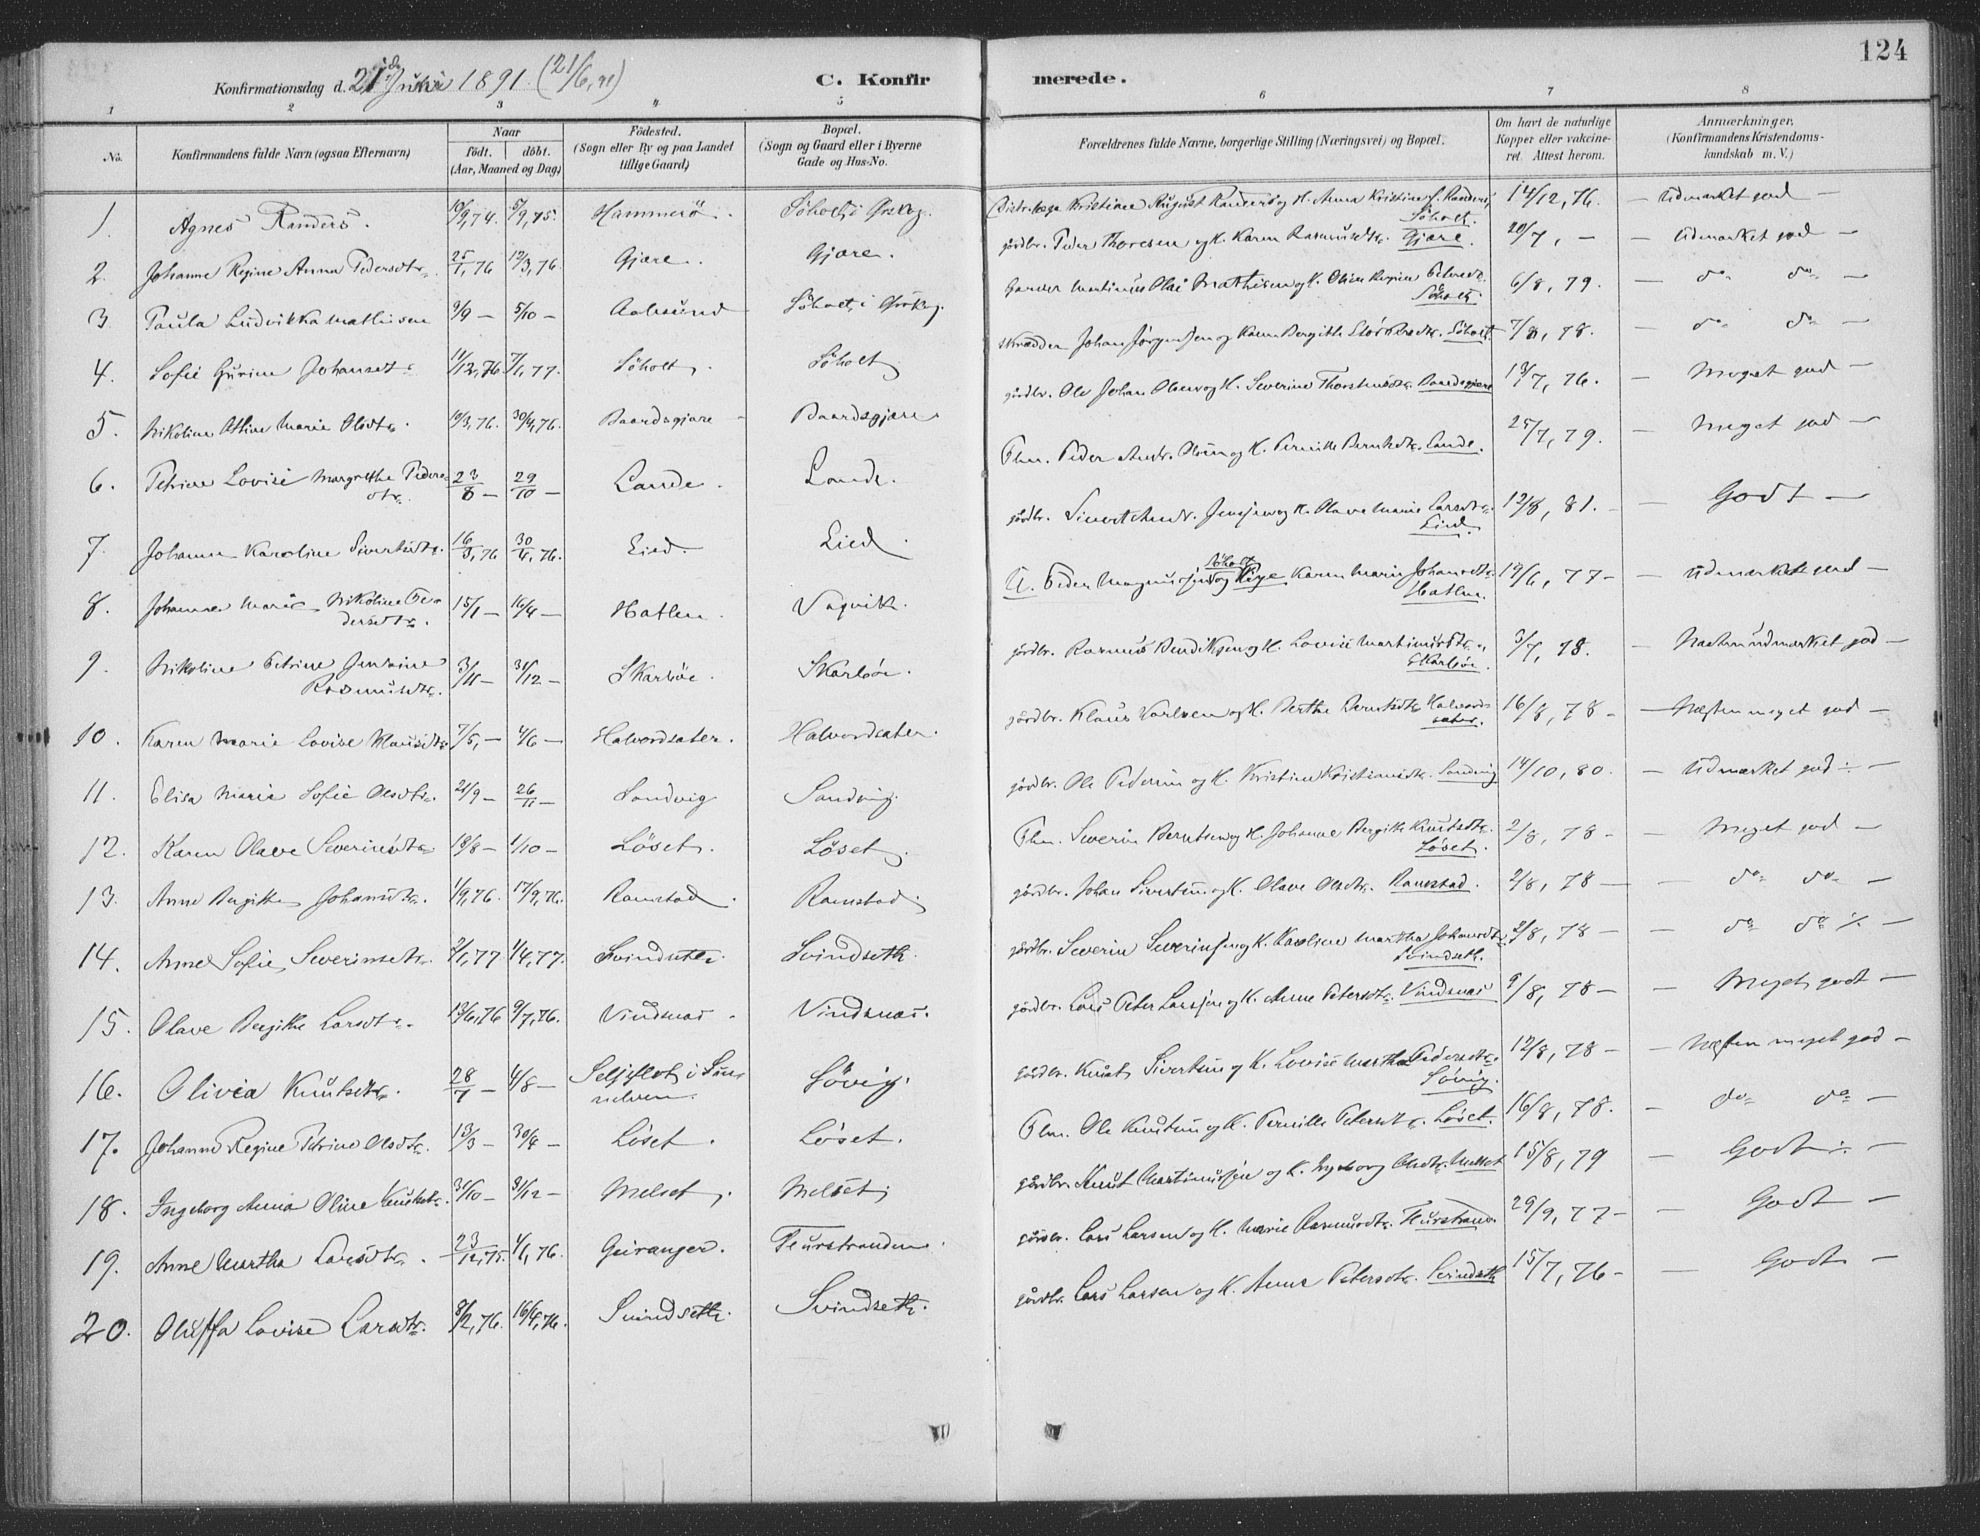 124
Konfirmationsdag d. 21de Juni 1891. (21/6, 91)
C. Konfirmerede.
1 2 3 4 5 6 7 8
No.
Konfirmandens fulde Navn (ogsaa Efternavn)
Naar
födt. döbt.
(Aar, Maaned og Dag)
Födested.
(Sogn eller By og paa Landet
tillige Gaard)
Bopæl.
(Sogn og Gaard eller i Byerne
Gade og Hus-No.
Forældrenes fulde Navne, borgerlige Stilling (Næringsvei) og Bopæl.
Om havt de naturlige
Kopper eller vakcine-
ret. Attest herom.
Anmærkninger.
(Konfirmandens Kristendoms-
kundskab m. V.)
1. Agnes Randers. 10/9, 74. 5/9, 75. Hammerö. Söholt i Ørskog. Kristian August Randers og H. Anna Kristine Randers, Söholt. 14/12, 76. — Udmærket god —
2. Johanne Regine Anna Pedersdtr. 25/1, 76 12/3, 76. Gjære. Gjære. gårdbr. Peder Thoresen og H. Karen Rasmusdtr. Gjære. 20/7, — — Udmærket god —
3. Paula Ludvikka Mathisen 9/9 — 5/10 — Aalesund Söholt i Ørskog. Garver Martinus Olai Mathisen og H. Oline Regine Söholt. 6/8, 79. — do do —
4. Sofie Gurine Johansdtr. 11/12, 76. 7/1, 77. Söholt. Söholt Skrædder Johan Jörgensen og Karen Bergithe Söholt. 7/8, 78. — do do —
5. Nikoline Attine Marie Olsdtr. 10/3, 76. 30/4, 76. Baardsgjære — Baardsgjære gårdbr. Ole Johan Olsen og H. Severine Thorstensdtr. Baardsgjære 13/7, 76. — Meget god —
6. Petrine Lovise Margrethe Peders-
dtr. 23/8 — 29/10 — Lande. Lande. Flm. Peder Andr. og H. Pernille Berntsdtr. Lande. 25/7, 79. — Meget god —
7. Johanne Karoline Sivertsdtr. 16/3, 76 30/4, 76. Lied. Lied. gårdbr. Sivert Andr. Jensen og H. Olave Marie Larsdtr. Lied. 12/8, 81. — Godt —
8. Johanne Marie Nikoline Pe-
dersdtr. 15/1 — 16/4 — Hatlen. Vagvik. U. Peder Magnussen Söholt og Pige Karen Marie Johansdtr. Hatlen. 19/6, 77 — — Udmærket god —
9. Nikoline Petrine Jensine
Rasmusdtr. 3/11 — 31/12 — Skarböe. Skarböe. gårdbr. Rasmus Bendiksen og H. Lovise Martinusdtr. Skarböe. 3/7, 78. — Næsten udmærket god —
10. Karen Marie Lovise Klausdtr. 7/5, — 4/6 — Halvordsæter. Halvordsæter. gårdbr. Klaus Karlsen og H. Berthe Berntsdtr. Halvord-
sæter. 16/8, 78 — — Næsten meget god —
11. Elisa Marie Sofie Olsdtr. 21/9 — 26/11 — Sandvig Sandvig. gårdbr. Ole Pedersen og H. Kristine Kristiansdtr. Sandvig 14/10, 80. — Udmærket god ÷ —
12. Karen Olave Severinsdtr. 19/8 — 1/10 — Löset. Löset. Flm. Severin Berntsen og H. Johanne Bergithe Knutsdtr. Löset. 2/8, 78 — — Meget god —
13. Anne Bergitte Johansdtr. 1/9, 76. 17/9, 76. Ramstad. Ramstad. gårdbr. Johan Sivertsen og H. Olave Olsdtr. Ramstad. 2/8, 78 — — do do —
14. Anne Sofie Severinsdtr. 2/1, 77 1/4, 77. Svindseth. Svindseth. gårdbr. Severin Severinsen og H. Karoline Martha Johansdtr. Svindseth. 2/8, 78 — — do do ÷ —
15. Olave Bergithe Larsdtr. 13/6, 76 9/7, 76. Vindsnæs. Vindsnæs. gårdbr. Lars Peter Larssen og H. Anne Petersdtr. Vindsnæs 9/8, 78 — — Meget godt —
16. Olivia Knutsdtr. 28/7 — 4/8 — Seljeflot i Sun-
nelven. Sövig. gårdbr. Knut Sivertsen og H. Lovise Martha Pedersdtr. Sövig. 12/8, 78 — — Næsten meget god —
17. Johanne Regine Petrine Olsdtr. 13/3 — 30/4 — Löset. Löset. Flm. Ole Knutsen og H. Pernille Petersdtr. Löset. 16/8, 78. — do do —
18. Ingeborg Anna Oline Knutsdtr. 31/10 — 31/12 — Melset. Melset. gårdbr. Knut Martinussen og H. Ingeborg Olsdtr. Melset 15/8, 79 — Godt ÷ —
19. Anne Martha Larsdtr. 23/12, 75. 1/1, 76. Geiranger. Flurstranden. gårdbr. Lars Larsen og H. Marie Rasmusdtr. Flurstrand. 29/9, 77 — — Godt —
20. Oluffa Lovise Larsdtr. 8/2, 76. 16/4, 76. Svindseth. Svindseth. gårdbr. Lars Larsen og H. Anne Petersdtr. Svindseth 15/7, 76 — — Godt —